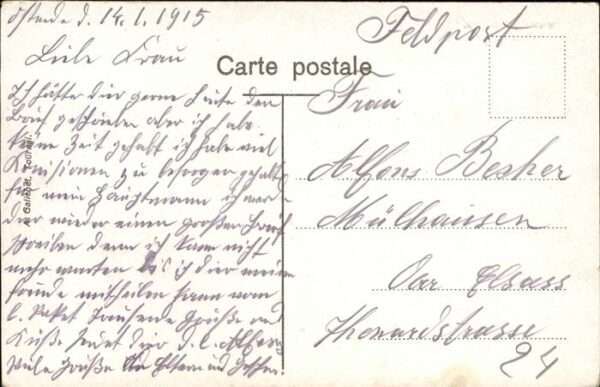 Ostende d. 14.1.1915
Liebe Frau
Ich hätte dir gerne heute den
Brief geschrieben aber ich habe
keine Zeit gehabt ich habe viel
Komisionen zu besorgen gehabt
für mein Hauptmann ich wer-
de dir wieder einen großen Brief
schreiben denn ich kann nicht
mehr warten bis ich dir meine
freude mittheilen kann vom
l. Paket Tausende Grüße und
Küße sendet dir d. l. Alfons
Viele Grüße an Eltern und
Carte postale
Feldpost
Frau
Alfons Becher
Mülhausen
Ober Elsass
Thenardstrasse
24